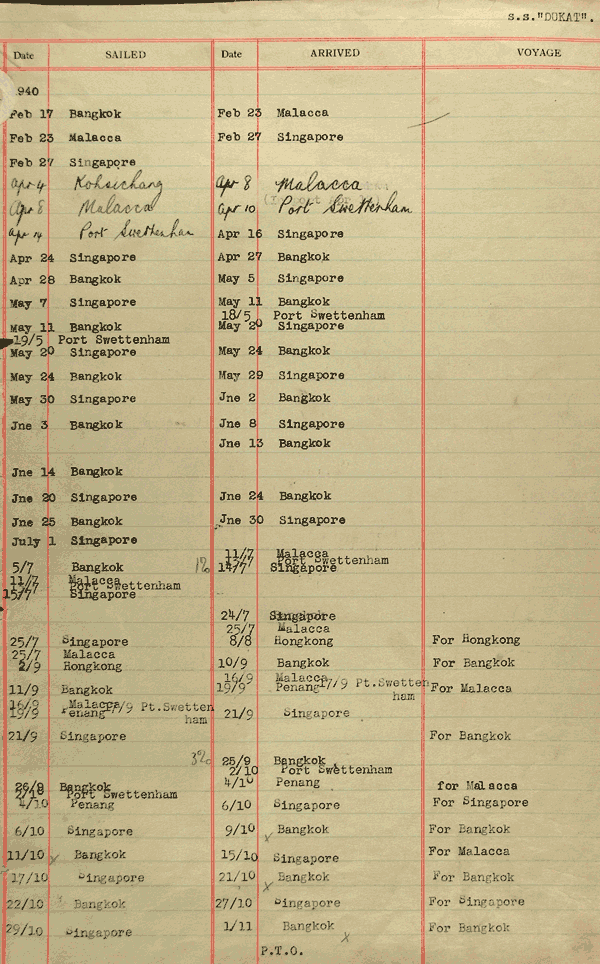 S.S."DUKAT".
Date SAILED Date ARRIVED VOYAGE
940
Feb 17 Bangkok Feb 23 Malacca
Feb 23 Malacca Feb 27 Singapore
Feb 27 Singapore
Apr 4 Kohsichang Apr 8 Malacca
Apr 8 Malacca Apr 10 Port Swettenham
Apr 14 Port Swettenham Apr 16 Singapore
Apr 24 Singapore Apr 27 Bangkok
Apr 28 Bangkok May 5 Singapore
May 7 Singapore May 11 Bangkok
18/5 Port Swettenham
May 11 Bangkok May 20 Singapore
19/5 Port Swettenham
May 20 Singapore May 24 Bangkok
May 24 Bangkok May 29 Singapore
May 30 Singapore Jne 2 Bangkok
Jne 3 Bangkok Jne 8 Singapore
Jne 13 Bangkok
Jne 14 Bangkok
Jne 20 Singapore Jne 24 Bangkok
Jne 25 Bangkok Jne 30 Singapore
July 1 Singapore
11/7 Malacca
Port Swettenham
5/7 Bangkok 14/7 Singapore
11/7 Malacca
Port Swettenham
15/7 Singapore
24/7 Singapore
25/7 Malacca
25/7 Singapore 8/8 Hongkong For Hongkong
25/7 Malacca
2/9 Hongkong 10/9 Bangkok For Bangkok
16/9 Malacca
11/9 Bangkok 19/9 Penang 17/9 Pt.Swetten For Malacca
ham
16/9 Malacca
19/9 Penang 17/9 Pt.Swetten 21/9 Singapore
ham
21/9 Singapore For Bangkok
25/9 Bangkok
2/10 Port Swettenham
4/10 Penang
26/9 Bangkok for Malacca
2/10 Port Swettenham
4/10 Penang 6/10 Singapore For Singapore
6/10 Singapore 9/10 Bangkok For Bangkok
11/10 Bangkok 15/10 Singapore For Malacca
17/10 Singapore 21/10 Bangkok For Bangkok
22/10 Bangkok 27/10 Singapore For Singapore
29/10 Singapore 1/11 Bangkok For Bangkok
P.T.O.